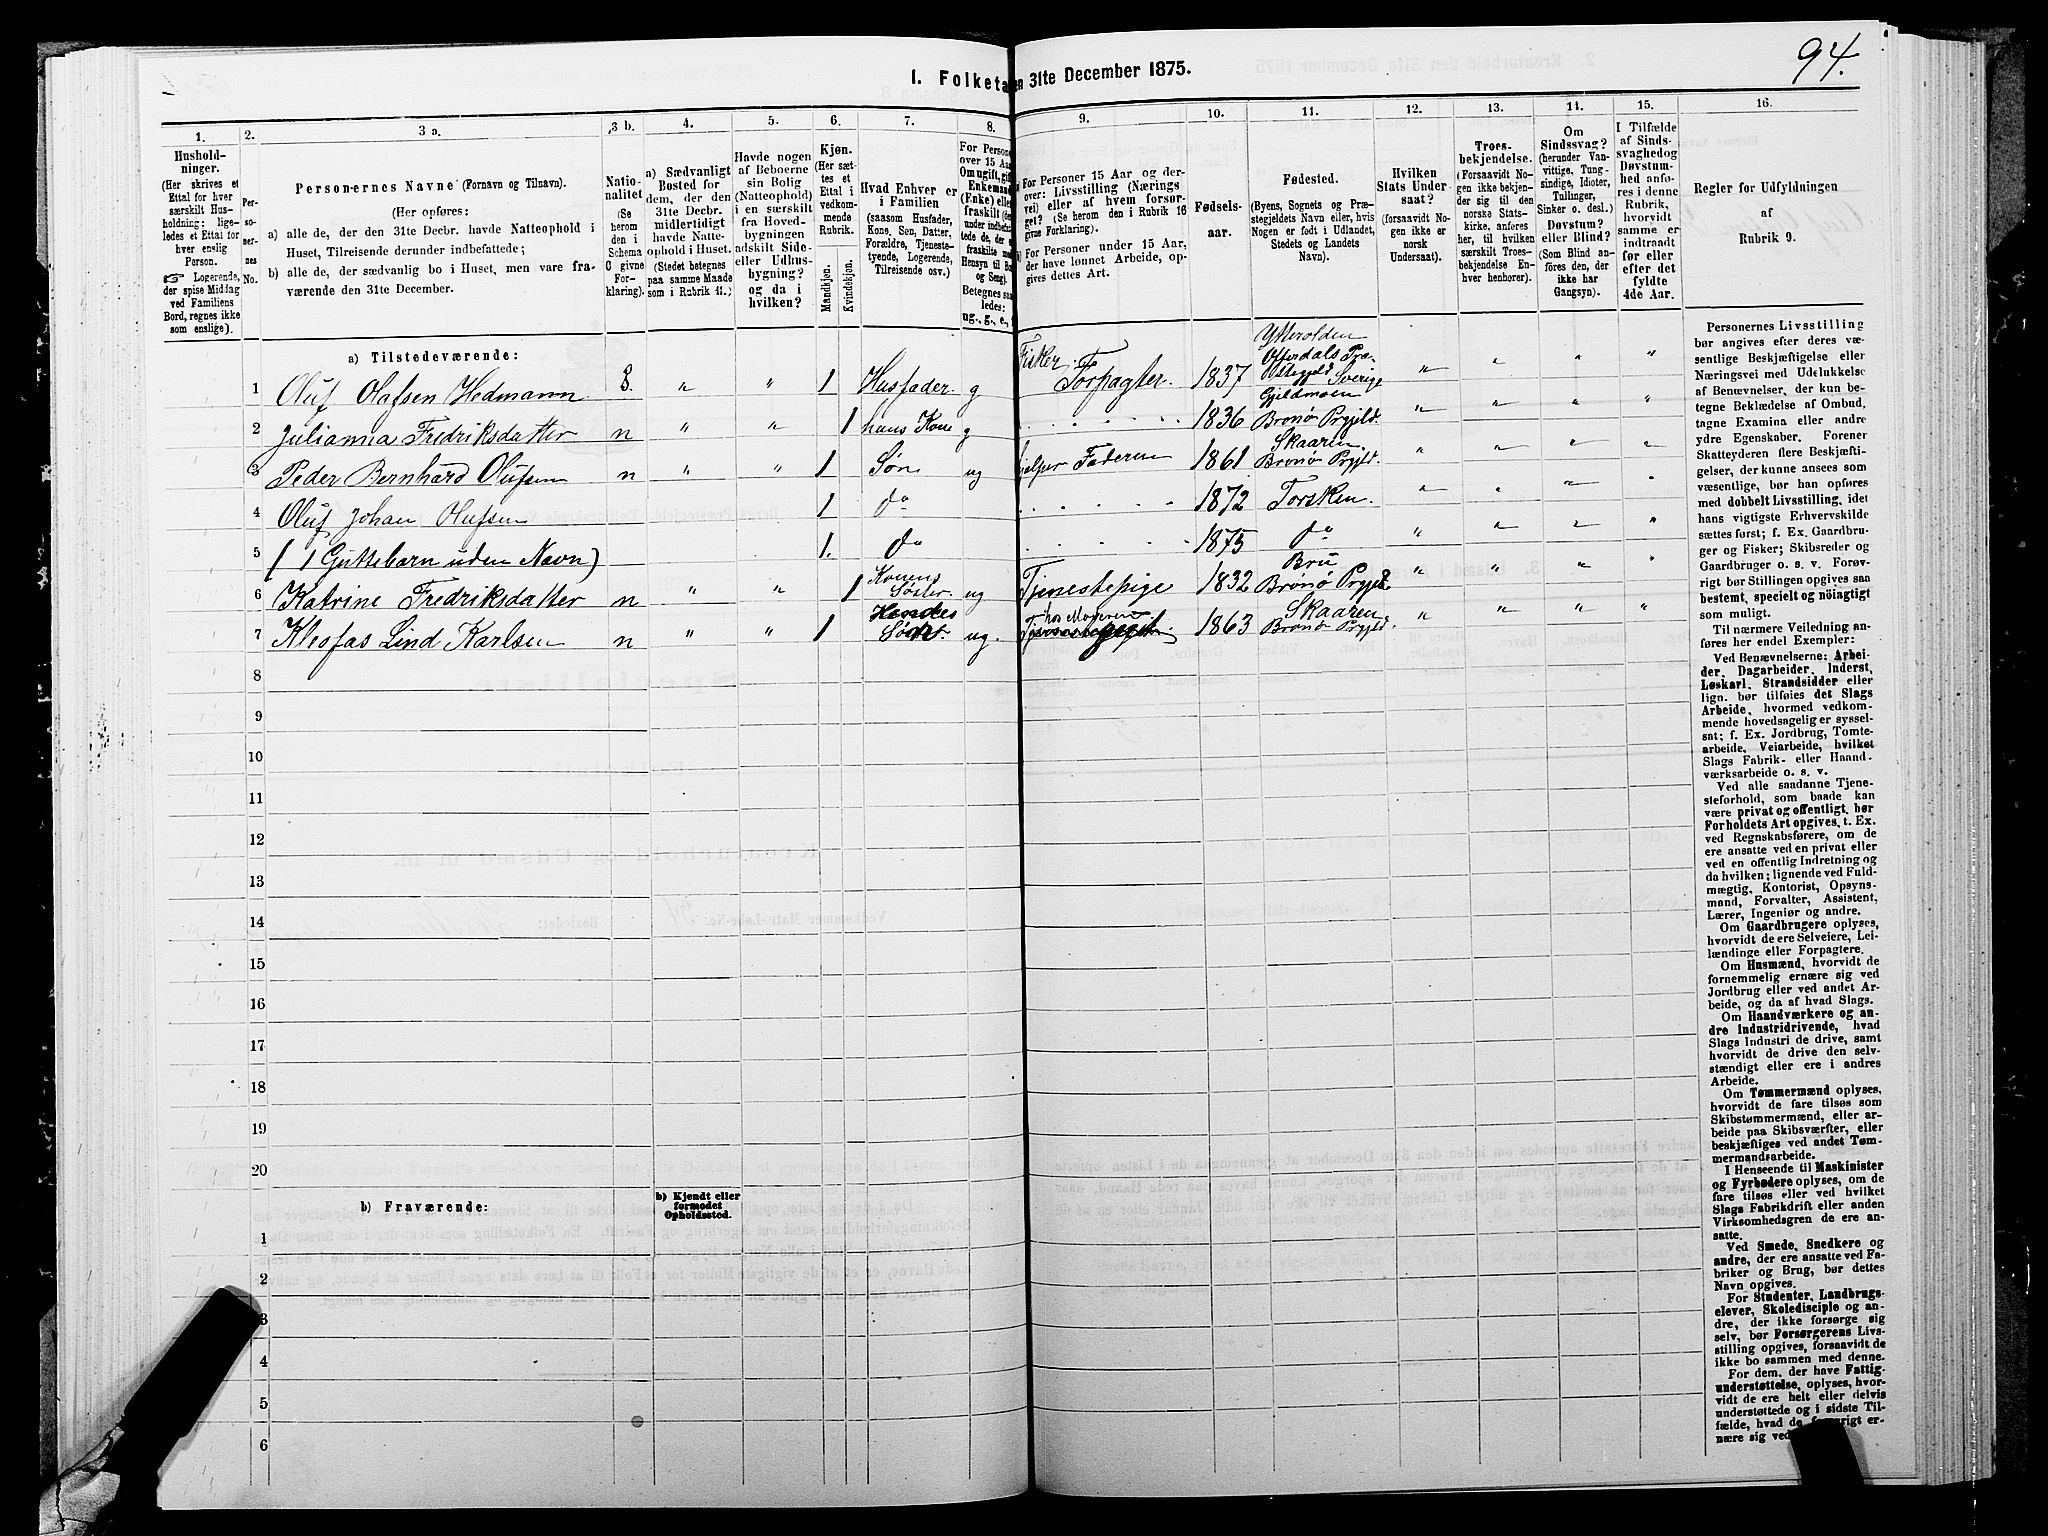 94.
1. Folketa en 31te December 1875.
1. 2. 3 a. 3 b. 4. 5. 6. 7. 8. 9. 10. 11. 12. 13. 14. 15. 16.
Hushold-
ninger.
(Her skrives et
Ettal for hver
særskilt Hus-
holdning; lige-
ledes et Ettal for
hver enslig
Person.
☞ Logerende,
der spise Middag
ved Familiens
Bord, regnes ikke
som enslige).
Per-
so-
ner-
nes
No.
Personernes Navne (Fornavn og Tilnavn).
(Her opføres:
a) alle de, der den 31te Decbr. havde Natteophold i
Huset, Tilreisende derunder indbefattede;
b) alle de, der sædvanlig bo i Huset, men vare fra-
værende den 31te December.
Natio-
nalitet
(Se
herom
den i
Schema
C givne
For-
klaring).
a) Sædvanligt
Bosted for
dem, der den
31te Decbr.
midlertidigt
havde Natte-
ophold i Huset.
(Stedet betegnes
paa samme Maade
som i Rubrik 11.)
Havde nogen
af Beboerne
sin Bolig
(Natteophold)
i en særskilt
fra Hoved-
bygningen
adskilt Side-
eller Udhus-
bygning?
og da i
hvilken?
Kjøn.
(Her sæt-
tes et
Ettal i
vedkom-
mende
Rubrik.
Mandkjøn.
Kvindekjøn.
Hvad Enhver er
i Familien
(saasom Husfader,
Kone, Søn, Datter,
Forældre, Tjeneste-
tyende, Logerende,
Tilreisende osv.)
For Persone
over 15 Aar
Om ugift, gift
Enkemand
(Enke) eller
fraskilt
ug., g., e.,
For Personer 15 Aar og der-
over: Livsstilling (Nærings
vei) eller af hvem forsør-
get? (Se herom den i Rubrik 16
givne Forklaring).
For Personer under 15 Aar,
der have lønnet Arbeide, op-
gives dettes Art.
Fødsels-
aar.
Fødested.
(Byens, Sognets og Præ-
stegjeldets Navn eller, hvis
Nogen er født i Udlandet,
Stedets og Landets
Navn).
Hvilken
Stats Under-
saat?
(forsaavidt No-
gen ikke er
norsk
Undersaat).
Troes-
bekjendelse.
(Forsaavidt No-
gen ikke bekjen-
der sig til den
norske Stats-
kirke, anføres
her, til hvilken
særskilt Troes-
bekjendelse En-
hver henhører).
Om
Sindssvag?
(herunder Van-
vittige, Tung-
sindige, Idioter,
Tullinger,
Sinker o. desl.)
Døvstum?
eller Blind?
(Som Blind an-
føres den, der
ikke har
Gangsyn).
I Tilfælde
af Sinds-
svaghed og
Døvstum-
hed anfø-
res i denne
Rubrik,
hvorvidt
samme er
indtraadt
før eller
efter det
fyldte
4de Aar.
Regler for Udfyldningen
af
Rubrik 9.
a) Tilstedeværende:
1 Oluf Olafsen Hedmann. S. „ „ 1 Husfader. g Fisker. Forpagter. 1837 Ytterolden Offerdals Præ- stegjeld Sverige „ „ „ „
2 Julianna Fredriksdatter n „ „ 1 hans Kone g 1836 Gjildmoen Brønø Prgjld. „ „ „ „
3 Peder Bernhard Olufsen n „ „ 1 Søn ug hjelper Faderen 1861 Skaaren Brønø Prgjld. „ „ „ „
4 Oluf Johan Olufsen 1 do 1872 Torsken. „ „ „ „
5 (1 Guttebarn uden Navn) 1. do 1875 do „ „ „ „
6 Katrine Fredriksdatter n „ „ 1 Konens Søster. ug Tjenestepige 1832 Bru Brønø Prgjld „ „ „ „
7 Kleofas Lind Karlsen n „ „ 1 Hendes Søn ug. hos Moderen 1863 Skaaren Brønø Prgjld. „ „ „ „
8
9
10
11
12
13
14
15
16
17
18
19
20
b) Fraværende:
b) Kjendt eller
formodet
Opholdssted.
1
2
3
4
5
6
Personernes Livsstilling
bør angives efter deres væ-
sentlige Beskjæftigelse eller
Næringsvei med Udelukkelse
af Benævnelser, der kun be-
tegne Beklædelse af Ombud,
tagne Examina eller andre
ydre Egenskaber. Forener
Skatteyderen flere Beskjæfti-
gelser, der kunne ansees som
væsentlige, bør han opføres
med dobbelt Livsstilling, idet
hans vigtigste Erhvervskilde
sættes først; f. Ex. Gaardbru-
ger og Fisker; Skibsreder og
Gaardbruger o. s. v. Forøv-
rigt bør Stillingen opgives saa
bestemt, specielt og nöiagtigt
som muligt.
Til nærmere Veiledning an-
føres her endel Exempler:
Ved Benævnelserne: Arbei-
der, Dagarbeider, Inderst,
Løskarl, Strandsidder eller
lign. bør tilføies det Slags
Arbeide, hvormed vedkom-
mende hovedsagelig er syssel-
sat; f. Ex. Jordbrug, Tomte-
arbeide, Veiarbeide, hvilket
Slags Fabrik- eller Haand-
værksarbeide o. s. v.
Ved alle saadanne Tjene-
steforhold, som baade kan
være privat og offentligt, bør
Forholdets Art opgives, t. Ex.
ved Regnskabsførere, om de
ere ansatte ved en privat eller
ved en offentlig Indretning og
da hvilken; lignende ved Fuld-
mægtig, Kontorist, Opsyns-
mand, Forvalter, Assistent,
Lærer, Ingeniør og andre.
Om Gaardbrugere oplyses,
hvorvidt de ere Selveiere, Lei-
lændinge eller Forpagtere.
Om Husmænd, hvorvidt de
fornemmelig ernære sig ved
Jordbrug eller ved andet Ar-
beide, og da af hvad Slags.
Om Haandværkere og an-
dre Industridrivende, hvad
Slags Industri de drive, samt
hvorvidt de drive den selv-
stændigt eller ere i andres
Arbeide.
Om Tømmermænd oplyses,
hvorvidt de fare tilsøs som
Skibstømmermænd, eller ar-
beide paa Skibsværfter, eller
beskjæftiges ved andet Tøm-
mermandsarbeide.
I Henseende til Maskinister
og Fyrbødere oplyses, om de
fare tilsøs eller ved hvilket
Slags Fabrikdrift eller anden
Virksomhedsgren de ere an-
satte.
Ved Smede, Snedkere og
andre, der ere ansatte ved Fa-
briker og Brug, bør dettes
Navn opgives.
For Studenter, Landbrugs-
elever, Skoledisciple og an-
dre, der ikke forsørge sig
selv, bør Forsørgerens Livs-
stilling opgives, forsaavidt de
ikke bo sammen med denne.
For dem, der have Fattig-
understøttelse, oplyses, hvor-
vidt de ere helt eller delvis
understøttede og i sidste Til-
fælde, hvad de forøvrigt er-
nære sig ved